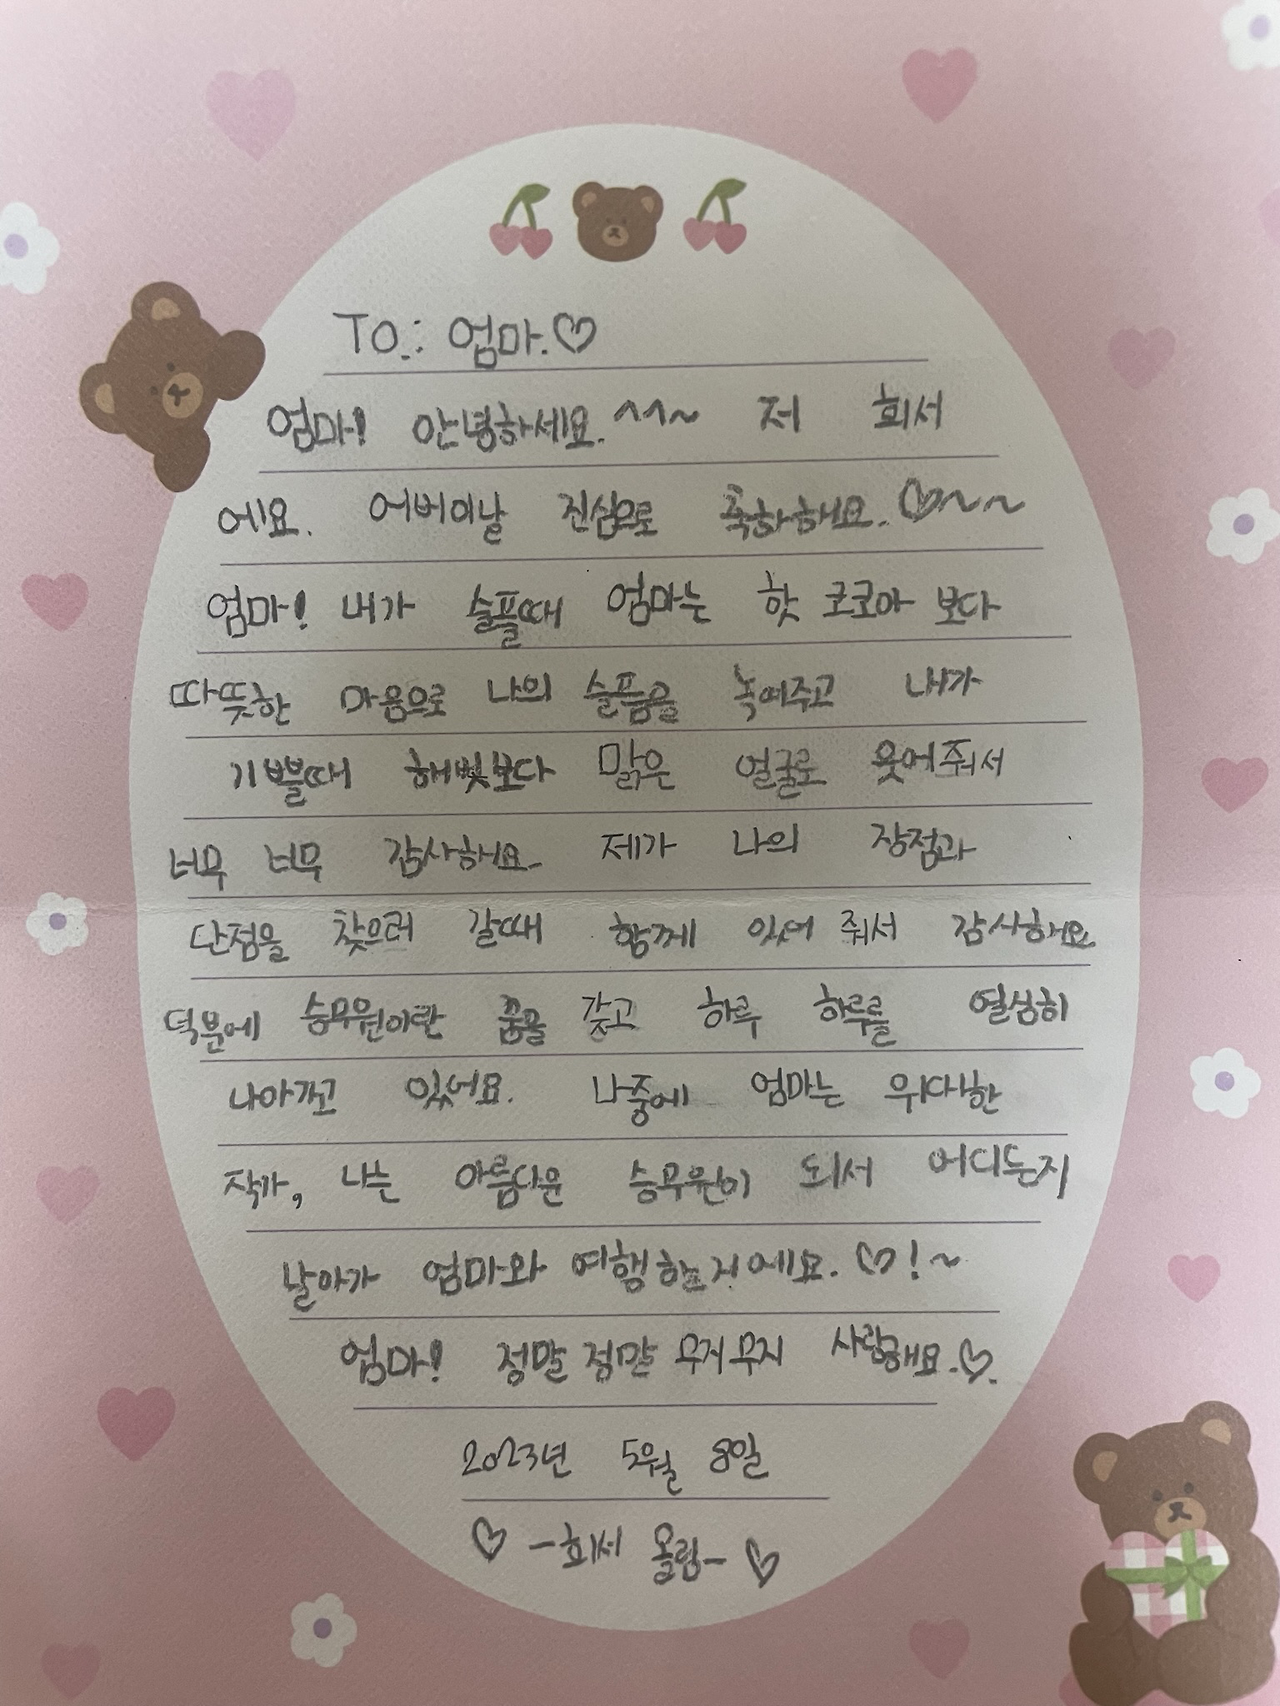 TO.: 엄마.♡
엄마! 안녕하세요.^^~ 저 희서
에요. 어버이날 진심으로 축하해요.♡~~
엄마! 내가 슬플때 엄마는 핫 코코아 보다
따뜻한 마음으로 나의 슬픔을 녹여주고 내가
기쁠때 해빛보다 맑은 얼굴로 웃어줘서
너무 너무 감사해요. 제가 나의 장점과
단점을 찾으러 갈때 함께 있어 줘서 감사해요
덕분에 승무원이란 꿈을 갖고 하루 하루를 열심히
나아가고 있어요. 나중에 엄마는 위대한
작가, 나는 아름다운 승무원이 되서 어디든지
날아가 엄마와 여행할거에요.♡!~
엄마! 정말 정말 무지무지 사랑해요.♡.
2023년 5월 8일
♡ -희서 올림- ♡